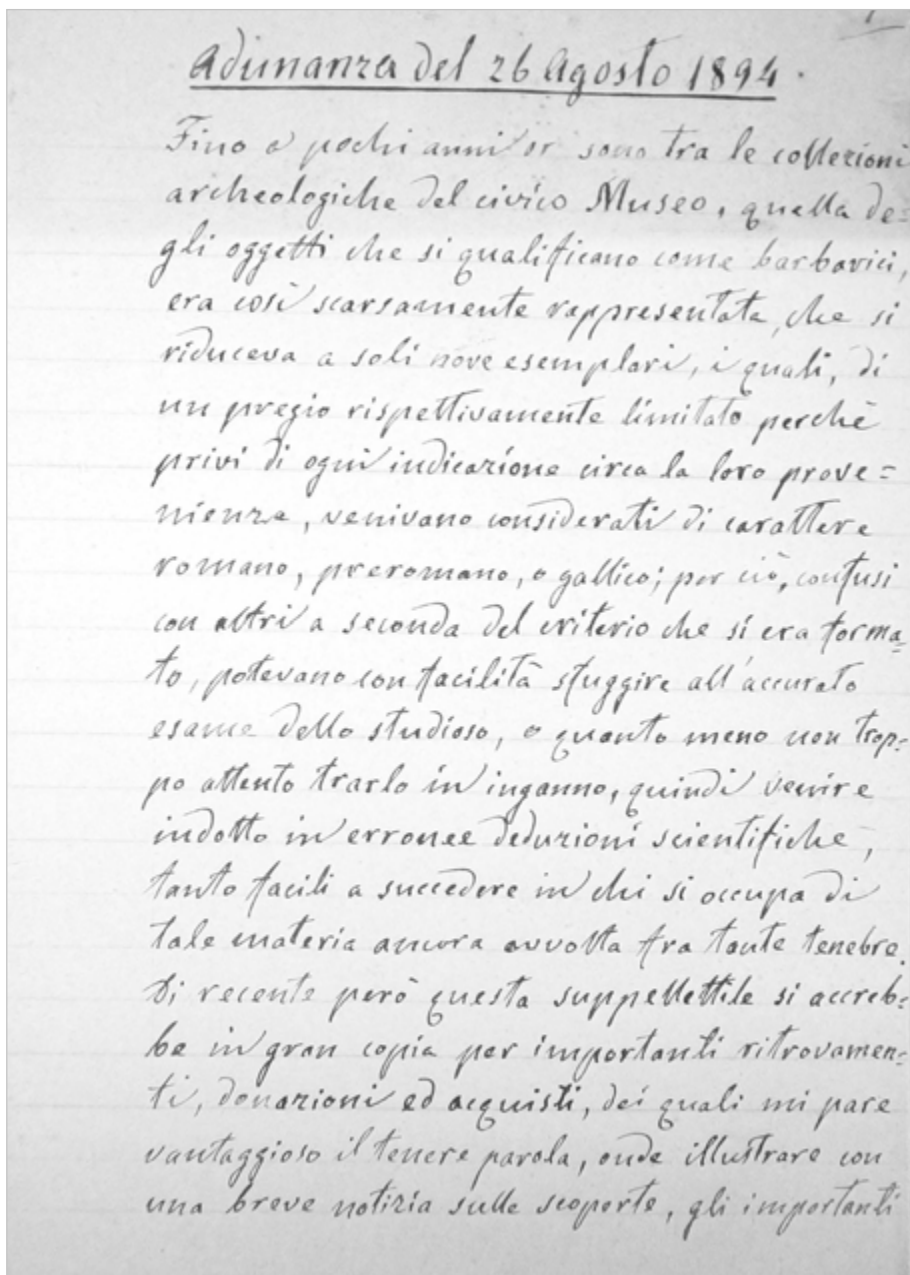 Adunanza del 26 Agosto 1894.
Fino a pochi anni or sono tra le collezioni
archeologiche del civico Museo, quella de=
gli oggetti che si qualificano come barbarici,
era così scarsamente rappresentata, che si
riduceva a soli nove esemplari, i quali, di
un pregio rispettivamente limitato perchè
privi di ogni indicazione circa la loro prove=
nienza, venivano considerati di carattere
romano, preromano, o gallico; per ciò, confusi
con altri a seconda del criterio che si era forma=
to, potevano con facilità sfuggire all'accurato
esame dello studioso, o quanto meno non trop=
po attento trarlo in inganno, quindi venire
indotto in erronee deduzioni scientifiche,
tanto facili a succedere in chi si occupa di
tale materia ancora avvolta fra tante tenebre.
Di recente però questa suppellettile si accreb=
be in gran copia per importanti ritrovamen=
ti, donazioni ed acquisti, dei quali mi pare
vantaggioso il tenere parola, onde illustrare con
una breve notizia sulle scoperte, gli importanti